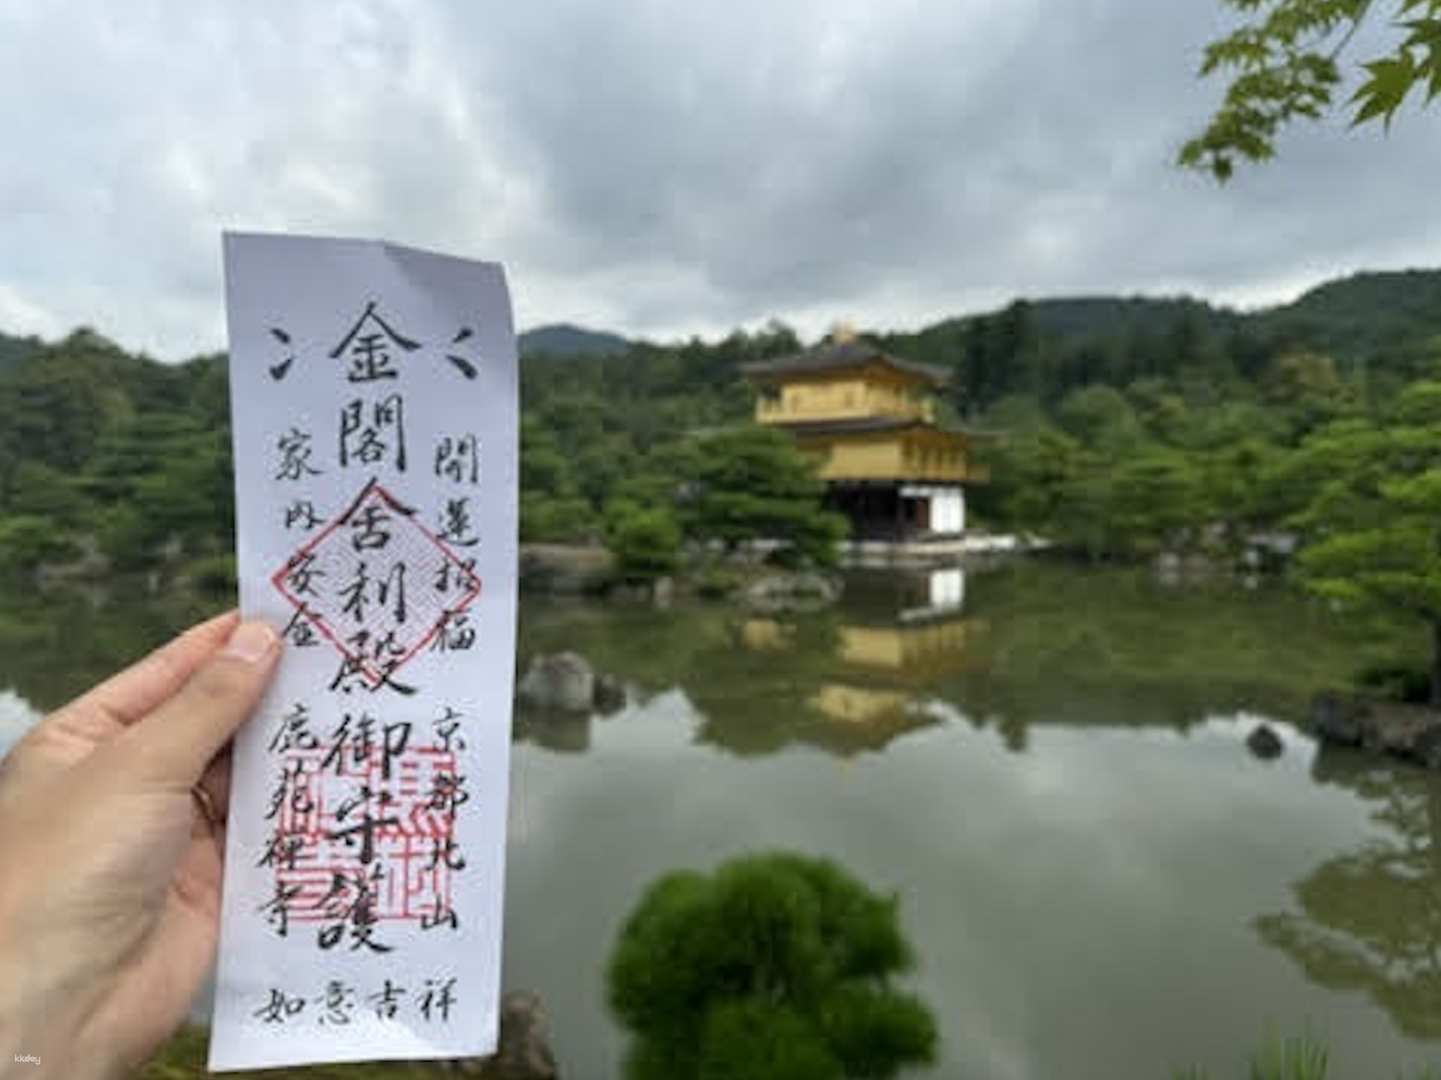 開運招福
京都北山
金閣舎利殿御守護
家内安全
鹿苑禅寺
如意吉祥
kkday